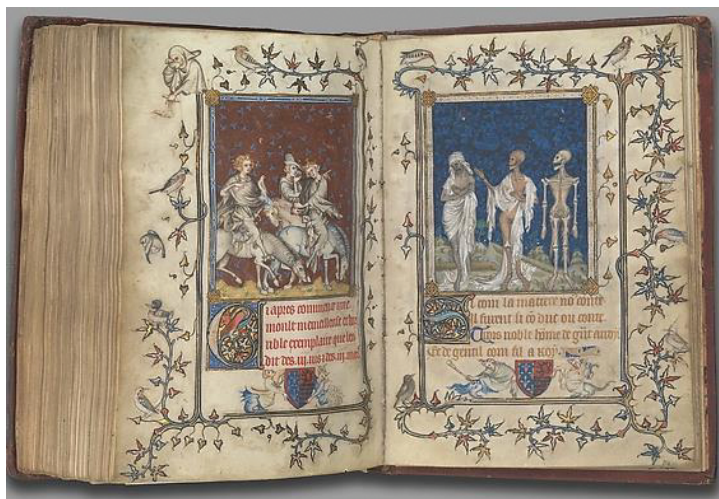 i apres commence une
moult merueilleuse et hor
rible exemplaire que len
dit des .iii. uis et des .iii. mors
com la matiere no conte
Il furent si cō duc ou conte
Trois noble hōme de grāt
Et de gentil com fil a Roy